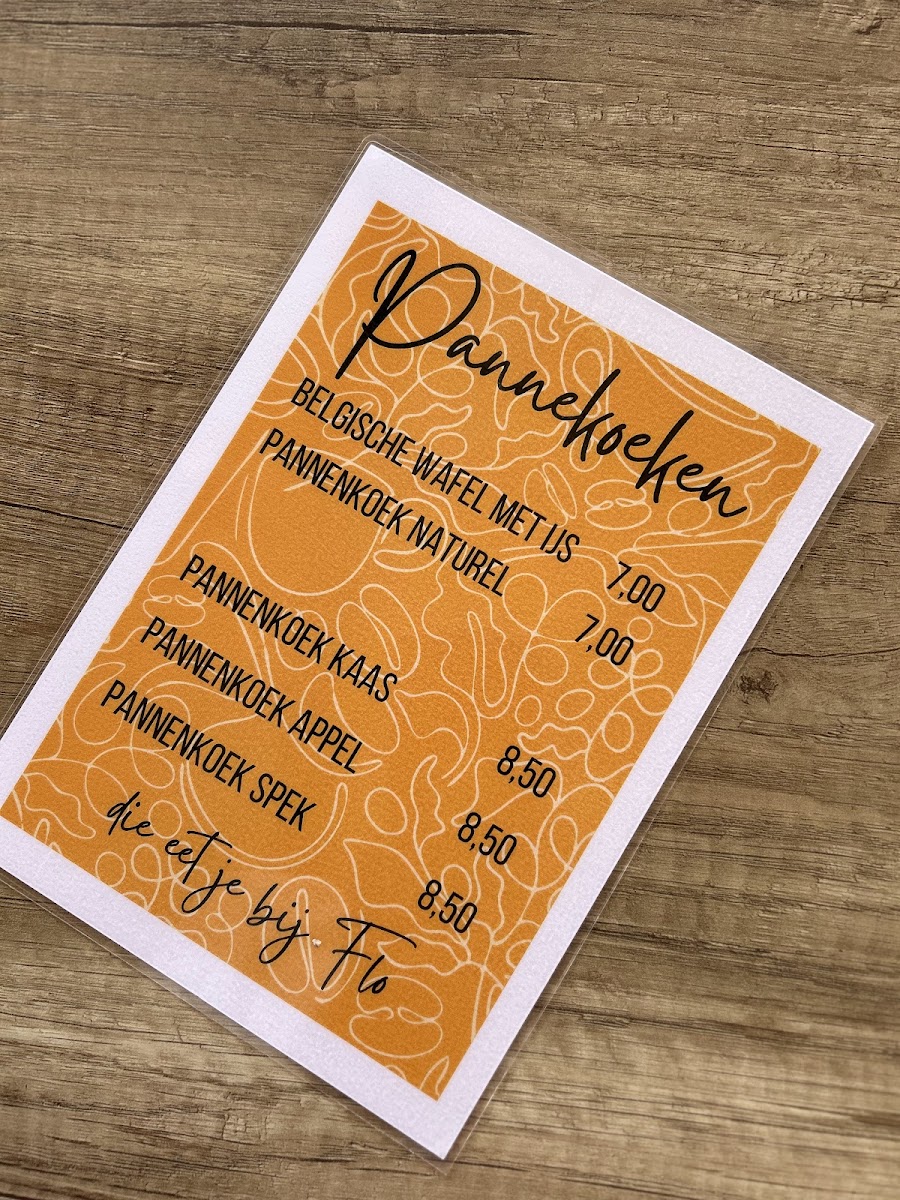 Pannekoeken
BELGISCHE WAFEL MET IJS 7,00
PANNENKOEK NATUREL 7,00
PANNENKOEK KAAS 8,50
PANNENKOEK APPEL 8,50
PANNENKOEK SPEK 8,50
die eet je bij. Flo